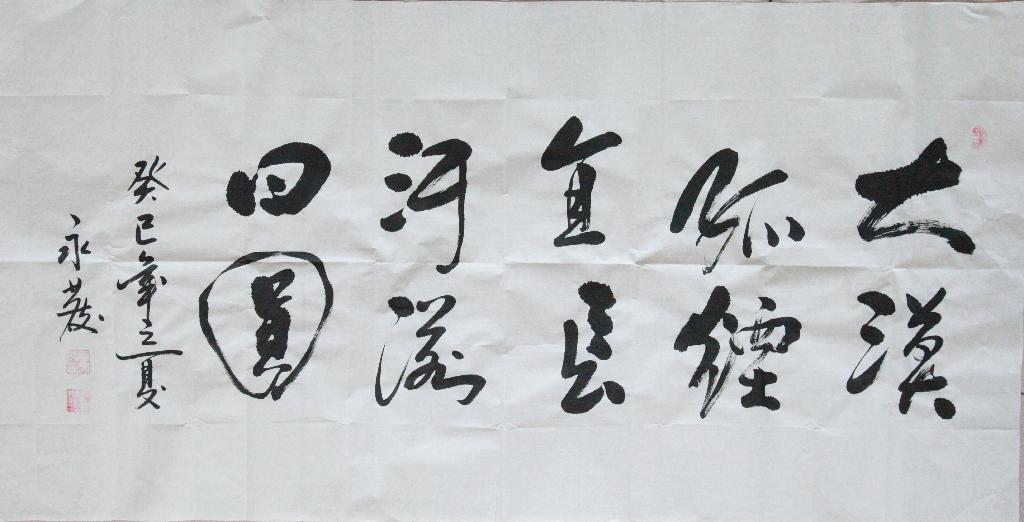 大漠
孤煙
直長
河落
日圓
癸巳年之夏
永